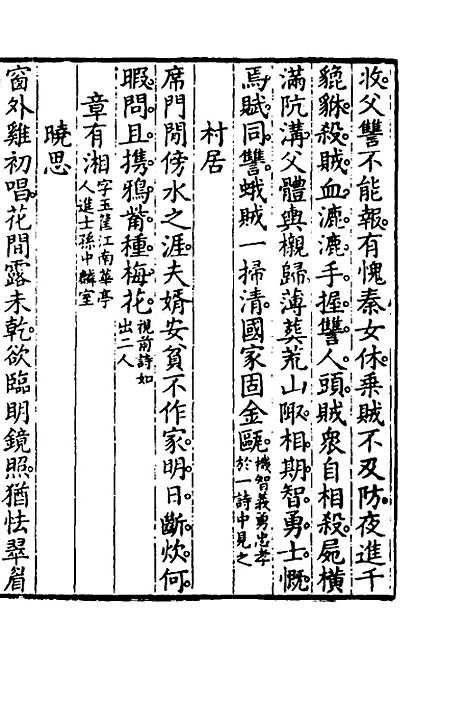 收父讐不能報有愧秦女休乗賊不及防夜進千
貔貅殺賊血漉漉手握讐人頭賊衆自相殺屍橫
滿阬溝父體輿櫬歸薄葬荒山陬相期智勇士慨
焉賦同讐蛾賊一掃清國家固金甌機智義勇忠孝於一詩中見之
村居
席門閒傍水之涯夫婿安貧不作家明日斷炊何
暇問且携鴉觜種梅花視前詩如出二人
章有湘字玉筐江南華亭人進士孫中麟室
曉思
窗外雞初唱花間露未乾欲臨明鏡照猶怯翠眉